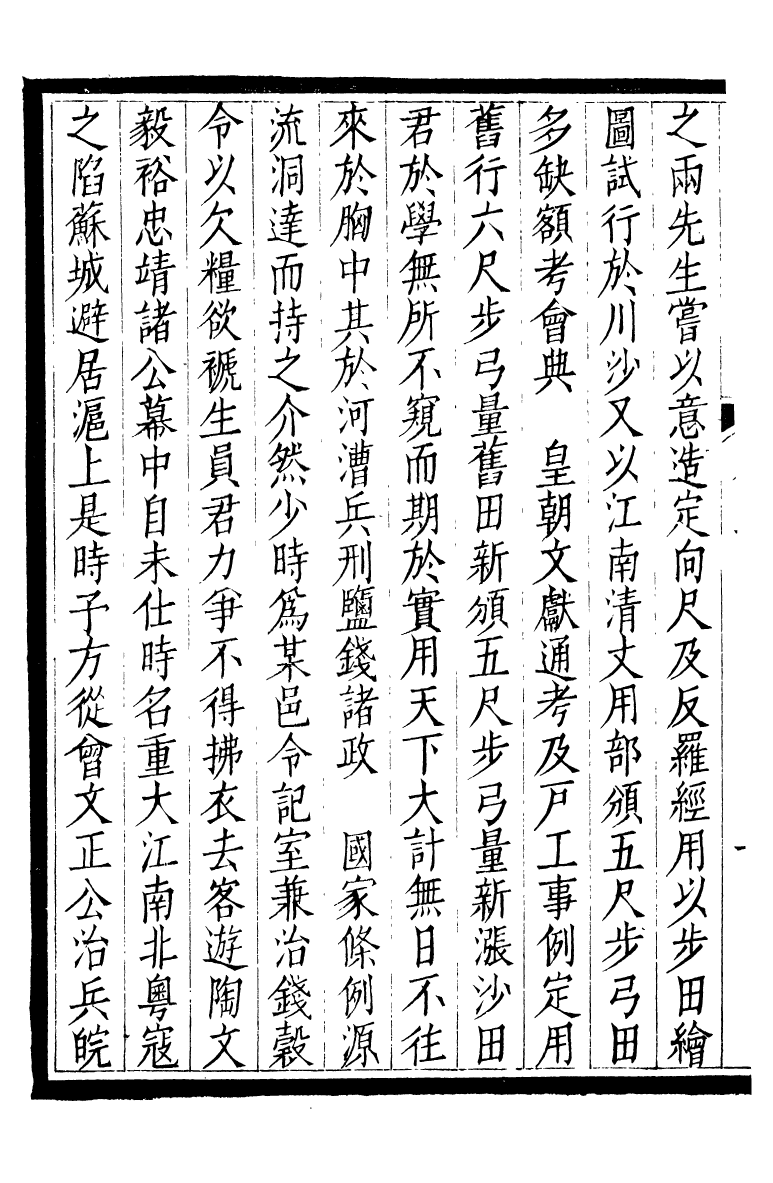 之兩先生嘗以意造定向尺及反羅經用以步田繪
圖試行於川沙又以江南清丈用部頒五尺步弓田
多缺額考會典　皇朝文獻通考及戸工事例定用
舊行六尺步弓量舊田新頒五尺步弓量新漲沙田
君於學無所不窺而期於實用天下大計無日不往
來於胸中其於河漕兵刑鹽錢諸政　國家條例源
流洞達而持之介然少時爲某邑令記室兼治錢穀
令以欠糧欲褫生員君力爭不得拂衣去客遊陶文
毅裕忠靖諸公幕中自未仕時名重大江南北粵寇
之陷蘇城避居滬上是時予方從曾文正公治兵皖